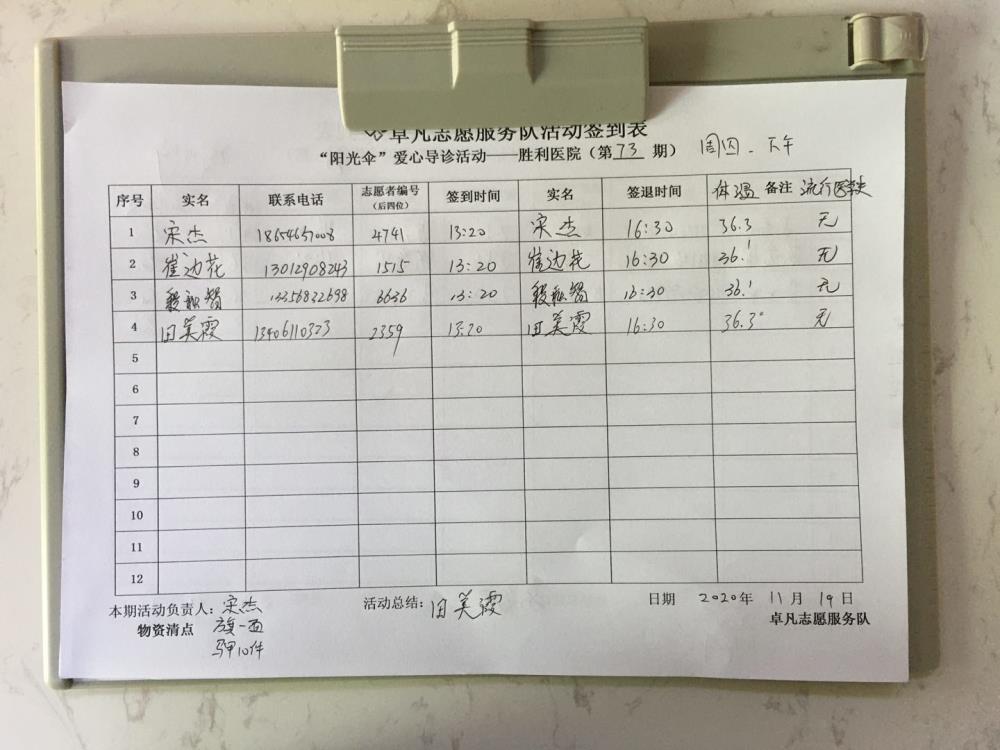 卓凡志愿服务队活动签到表
“阳光伞”爱心导诊活动——胜利医院（第 73 期） 周四.下午
序号 实名 联系电话 志愿者编号（后四位） 签到时间 实名 签退时间 体温 备注 流行医学史
1 宋杰 18654657008 4741 13:20 宋杰 16:30 36.3 无
2 崔边花 13012908243 1515 13:20 崔边花 16:30 36.1 无
3 13356832698 6636 13:20 16:30 36.1 无
4 田美霞 13406110323 2359 13:20 田美霞 16:30 36.3° 无
5
6
7
8
9
10
11
12
本期活动负责人：宋杰 活动总结：田美霞 日期 2020年 11月 19日
物资清点 旗一面 卓凡志愿服务队
马甲10件